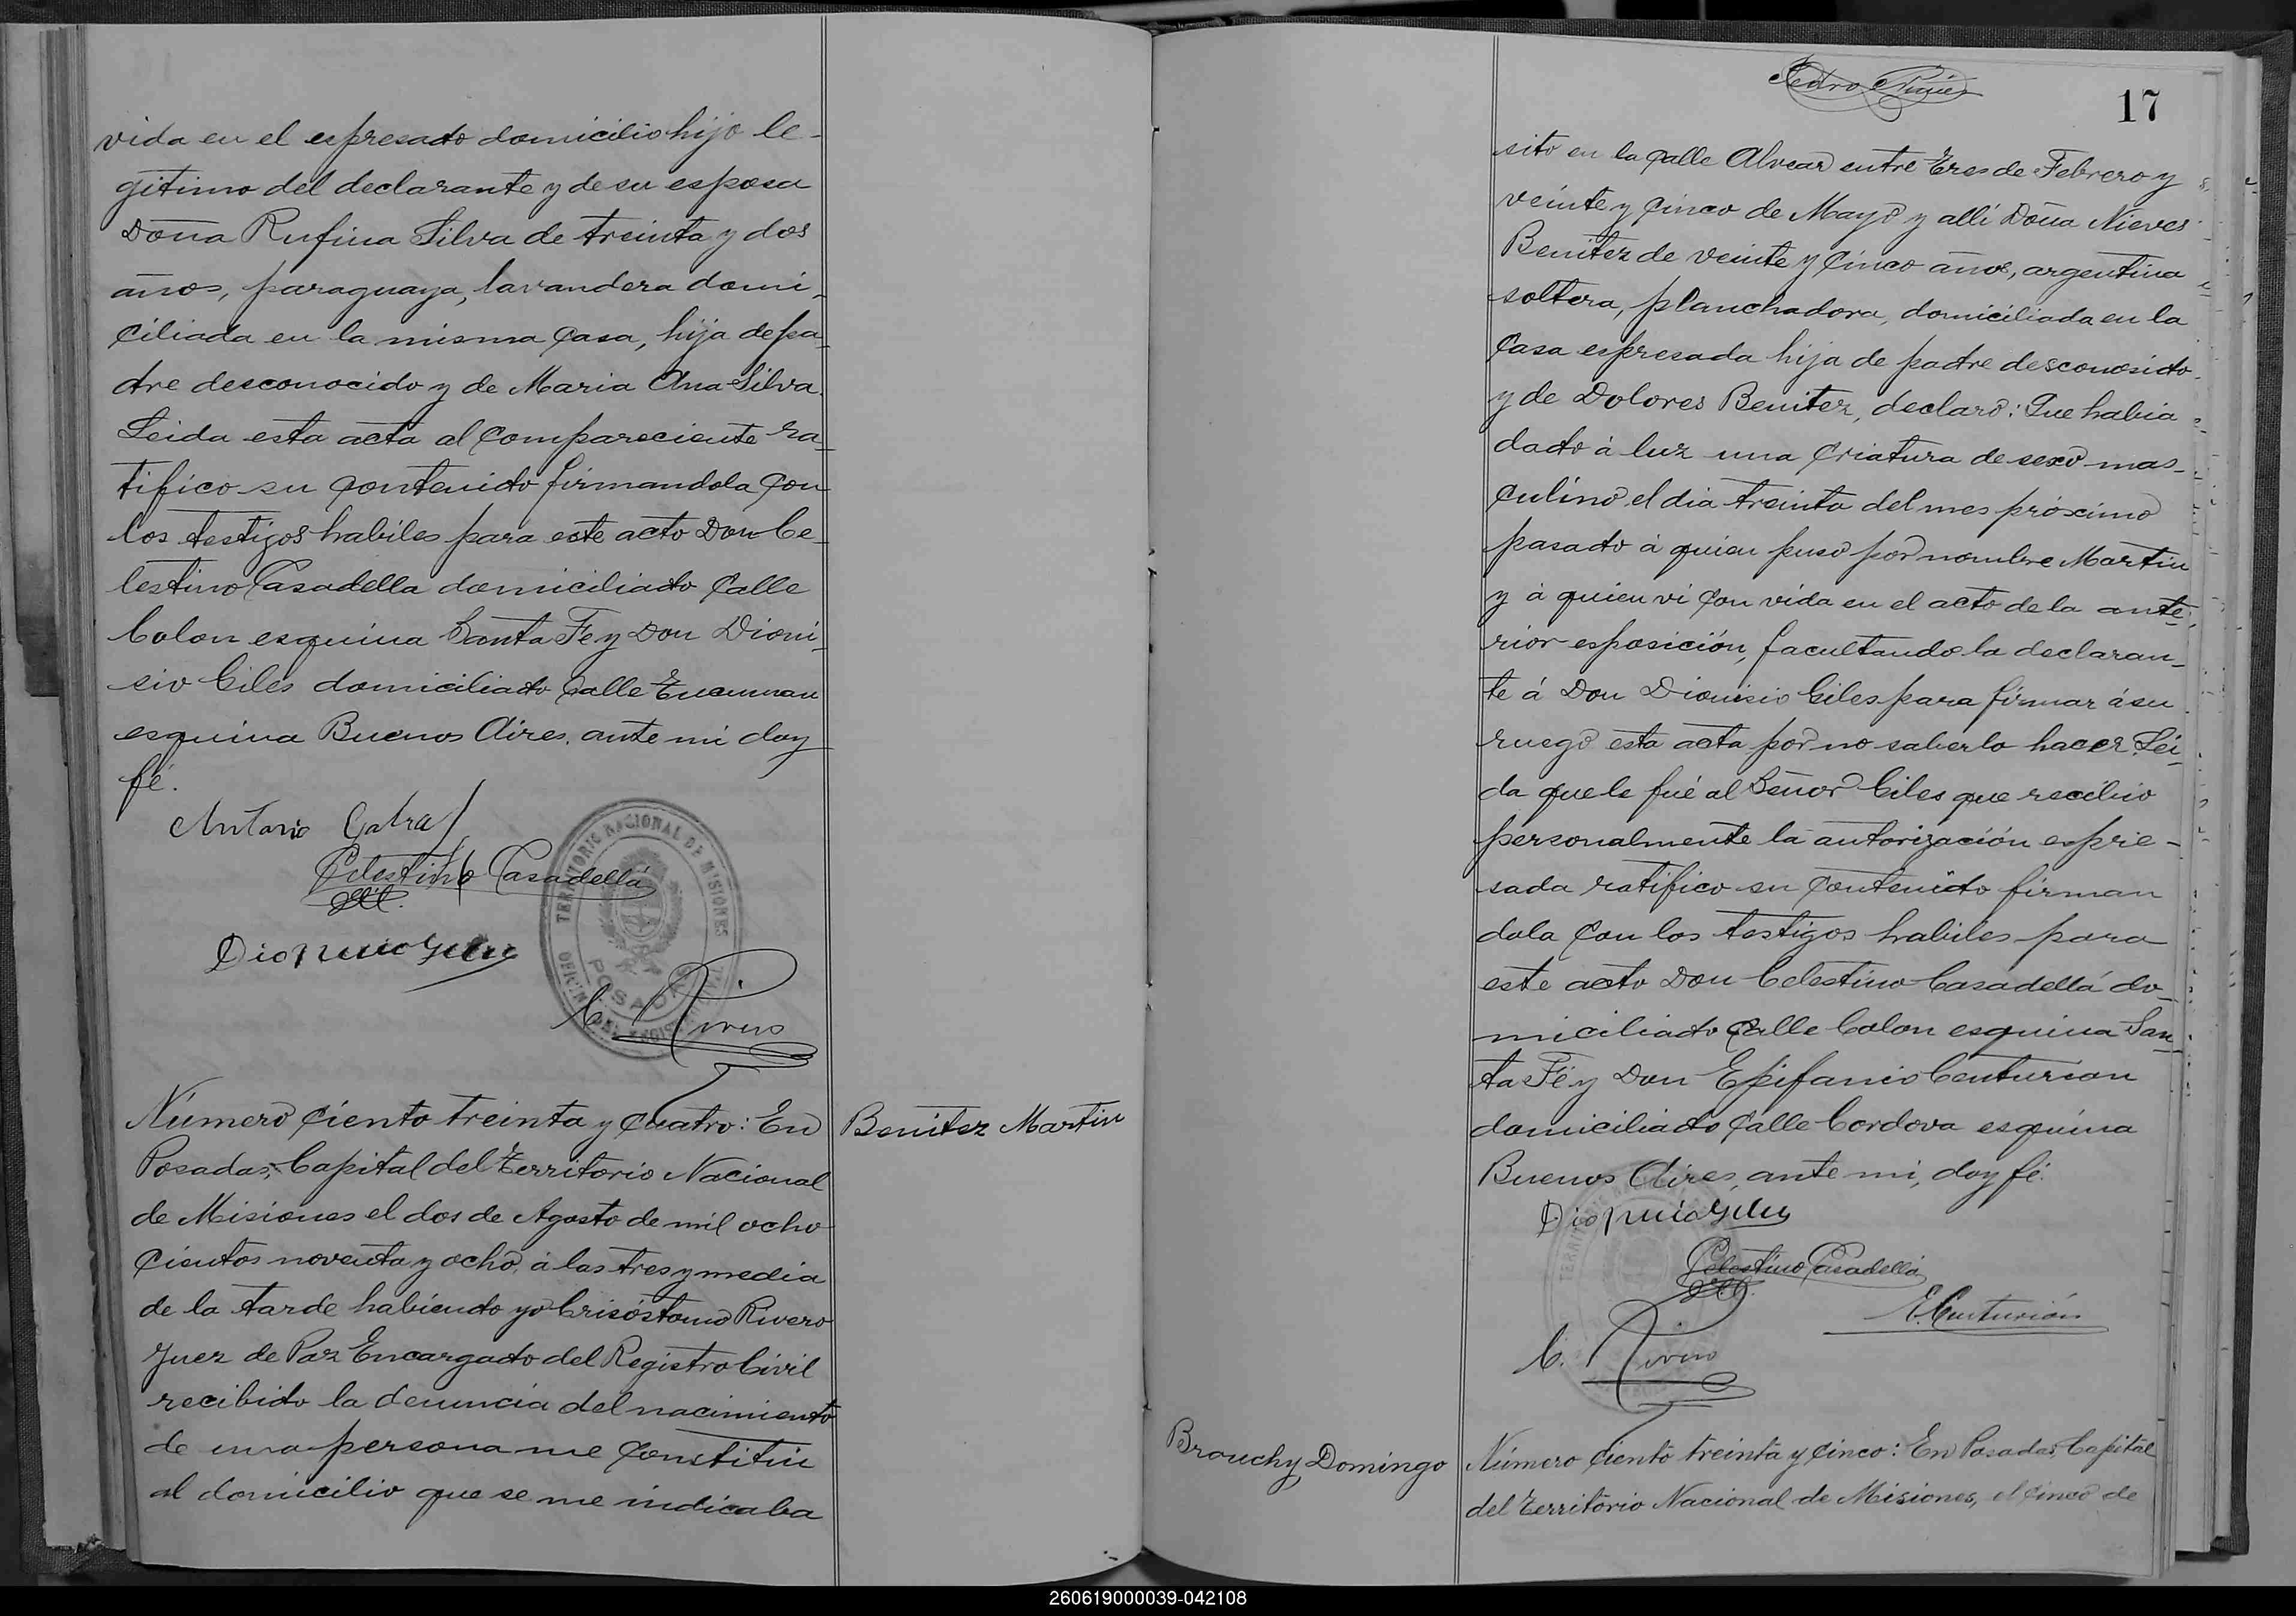 vida en el espresado domicilio hijo le-
gitimo del declarante y de su esposa
Doña Rufina Silva de treinta y dos
años, paraguaya, lavandera domi-
ciliada en la misma casa, hija de pa-
dre desconocido y de Maria Ana Silva.
Leida esta acta al compareciente ra-
tifico su contenido firmandola con
los testigos habiles para este acto Don Ce-
lestino Casadella domiciliado calle
Colon esquina Santa Fe y Don Dioni-
sio Giles domiciliado calle Tucuman
esquina Buenos Aires. ante mi doy
fé.
Antonio
Celestino Casadellá
Dionisio Giles
TERRITORIO NACIONAL DE MISIONES
POSADAS
OFICINA DEL REGISTRO CIVIL
C. Rivero
Número ciento treinta y cuatro: En
Posadas, Capital del Territorio Nacional
de Misiones el dos de Agosto de mil ocho
cientos noventa y ocho, á las tres y media
de la tarde habiendo yo Crisóstomo Rivero
Juez de Paz Encargado del Registro Civil
recibido la denuncia del nacimiento
de una persona me constitui
al domicilio que se me indicaba
Benitez Martin
Pedro
17
sito en la calle Alvear entre Tres de Febrero y
veinte y cinco de Mayo y allí Doña Nieves
Benitez de veinte y cinco años, argentina
soltera, planchadora, domiciliada en la
casa espresada hija de padre desconosido
y de Dolores Benitez, declaró: Que habia
dado á luz una criatura de sexo mas-
culino el dia treinta del mes próximo
pasado á quien puso por nombre Martin
y á quien vi con vida en el acto de la ante-
rior esposición, facultando la declaran-
te á Don Dionisio Giles para firmar á su
ruego esta acta por no saberlo hacer. Lei-
da que le fué al Señor Giles que recibio
personalmente la autorización espre-
sada ratifico su contenido firman
dola con los testigos habiles para
este acto Don Celestino Casadellá do-
miciliado calle Colon esquina San-
ta Fé y Don Epifanio Centurion
domiciliado calle Cordova esquina
Buenos Aires, ante mi, doy fé.
Dionisio Giles
Celestino Casadellá
E. Centurión
C. Rivero
Brouchy Domingo
Número ciento treinta y cinco: En Posadas, Capital
del Territorio Nacional de Misiones, el cinco de
260619000039-042108